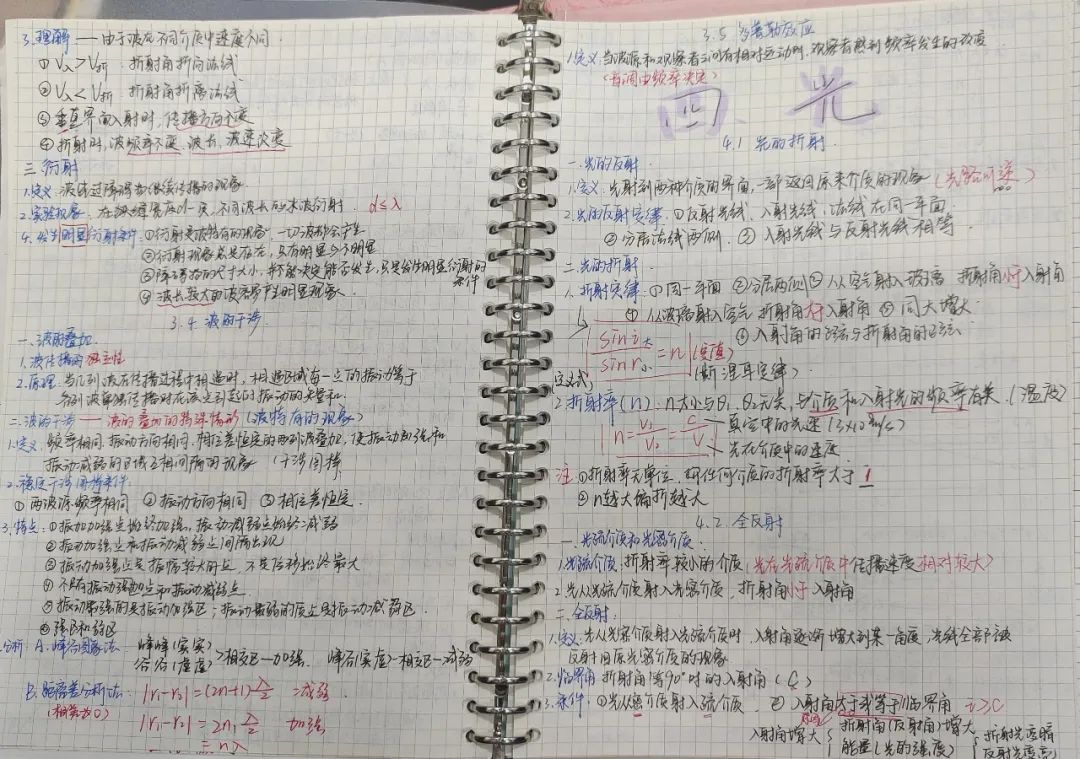 3.理解——由于波在不同介质中速度不同.
① V入>V折 : 折射角折向法线
② V入<V折 : 折射角折离法线
③ 垂直界面入射时, 传播方向不变
④ 折射时, 波频率不变, 波长、波速改变
三. 衍射
1.定义: 波绕过障碍物继续传播的现象.
2.实验现象: 在狭缝宽度d一定, 不同波长的水波衍射. d≤λ
4.发生明显衍射条件: ①衍射是波特有的现象, 一切波都会产生
②衍射现象总是存在, 只有明显与不明显
③障碍物的尺寸大小, 并不能决定能否发生, 只是发生明显衍射的条件
④ 波长较大的波容易产生明显现象.
3.4 波的干涉.
一. 波的叠加.
1.波传播的独立性
2.原理: 当几列波在传播过程中相遇时, 相遇区域每一点的振动等于
各列波单独传播时在该点引起的振动的矢量和.
二. 波的干涉——波的叠加的特殊情形 (波特有的现象)
1.定义: 频率相同, 振动方向相同, 相位差恒定的两列波叠加, 使振动加强和
振动减弱的区域互相间隔的现象 (干涉图样
2.稳定干涉图样条件:
① 两波源频率相同 ② 振动方向相同 ③ 相位差恒定.
3.特点: ①振动加强点始终加强, 振动减弱点始终减弱
②振动加强点和振动减弱点间隔出现
③ 振动加强点是振幅较大的点, 不是位移始终最大
④ 不只有振动强点和振动减弱点
⑤ 振动最强的是振动加强区; 振动最弱的质点是振动减弱区.
⑥强区和弱区
分析: A. 峰谷图象法—— 峰峰(实实) 谷谷(虚虚) >相交—加强. 峰谷(实虚)—相交—减弱
B. 距离差分析法: |r₁-r₂|=(2n+1)λ/2 减弱
(相差为0) |r₁-r₂|=2n·λ/2 加强
=nλ
3.5 多普勒效应
1.定义: 当波源和观察者之间有相对运动时, 观察者感到频率发生的改变
(音调由频率决定)
四、光
4.1 光的折射.
一. 光的反射.
1.定义: 光射到两种介质的界面, 一部返回原来介质的现象 (光路可逆)
2.光的反射定律: ①反射光线, 入射光线, 法线在同一平面.
② 分居法线两侧. ③ 入射光线与反射光线相等
二. 光的折射.
1.折射定律: ①同一平面 ②分居两侧 ③ 从空气射入玻璃 折射角小于入射角
④ 从玻璃射入空气 折射角大于入射角 ⑤ 同大增大
⑥ 入射角的正弦与折射角的正弦
sin i大/sin r小=n (定值)
定义式 (斯涅耳定律)
2.折射率(n): n大小与θ₁, θ₂无关, 与介质和入射光的频率有关. (温度)
n=V₁/V₂=C/V 真空中的光速 (3×10⁸m/s)
光在介质中的速度
注 ①折射率无单位, 任何介质的折射率大于1
② n越大偏折越大
4.2. 全反射
一. 光疏介质和光密介质.
1.光疏介质: 折射率较小的介质 (光在光疏介质中传播速度相对较大)
2.光从光疏介质射入光密介质, 折射角小于入射角
二. 全反射.
1.定义: 光从光密介质射入光疏介质时, 入射角逐渐增大到某一角度, 光线全部被
反射回原光密介质的现象
2.临界角: 折射角等90°时的入射角 (C)
3.条件: ①光从密介质射入疏介质. ② 入射角大于或等于临界角 i≥C
入射角增大 { 折射角(反射角)增大
能量(光的强度) { 折射光变暗
反射光变亮